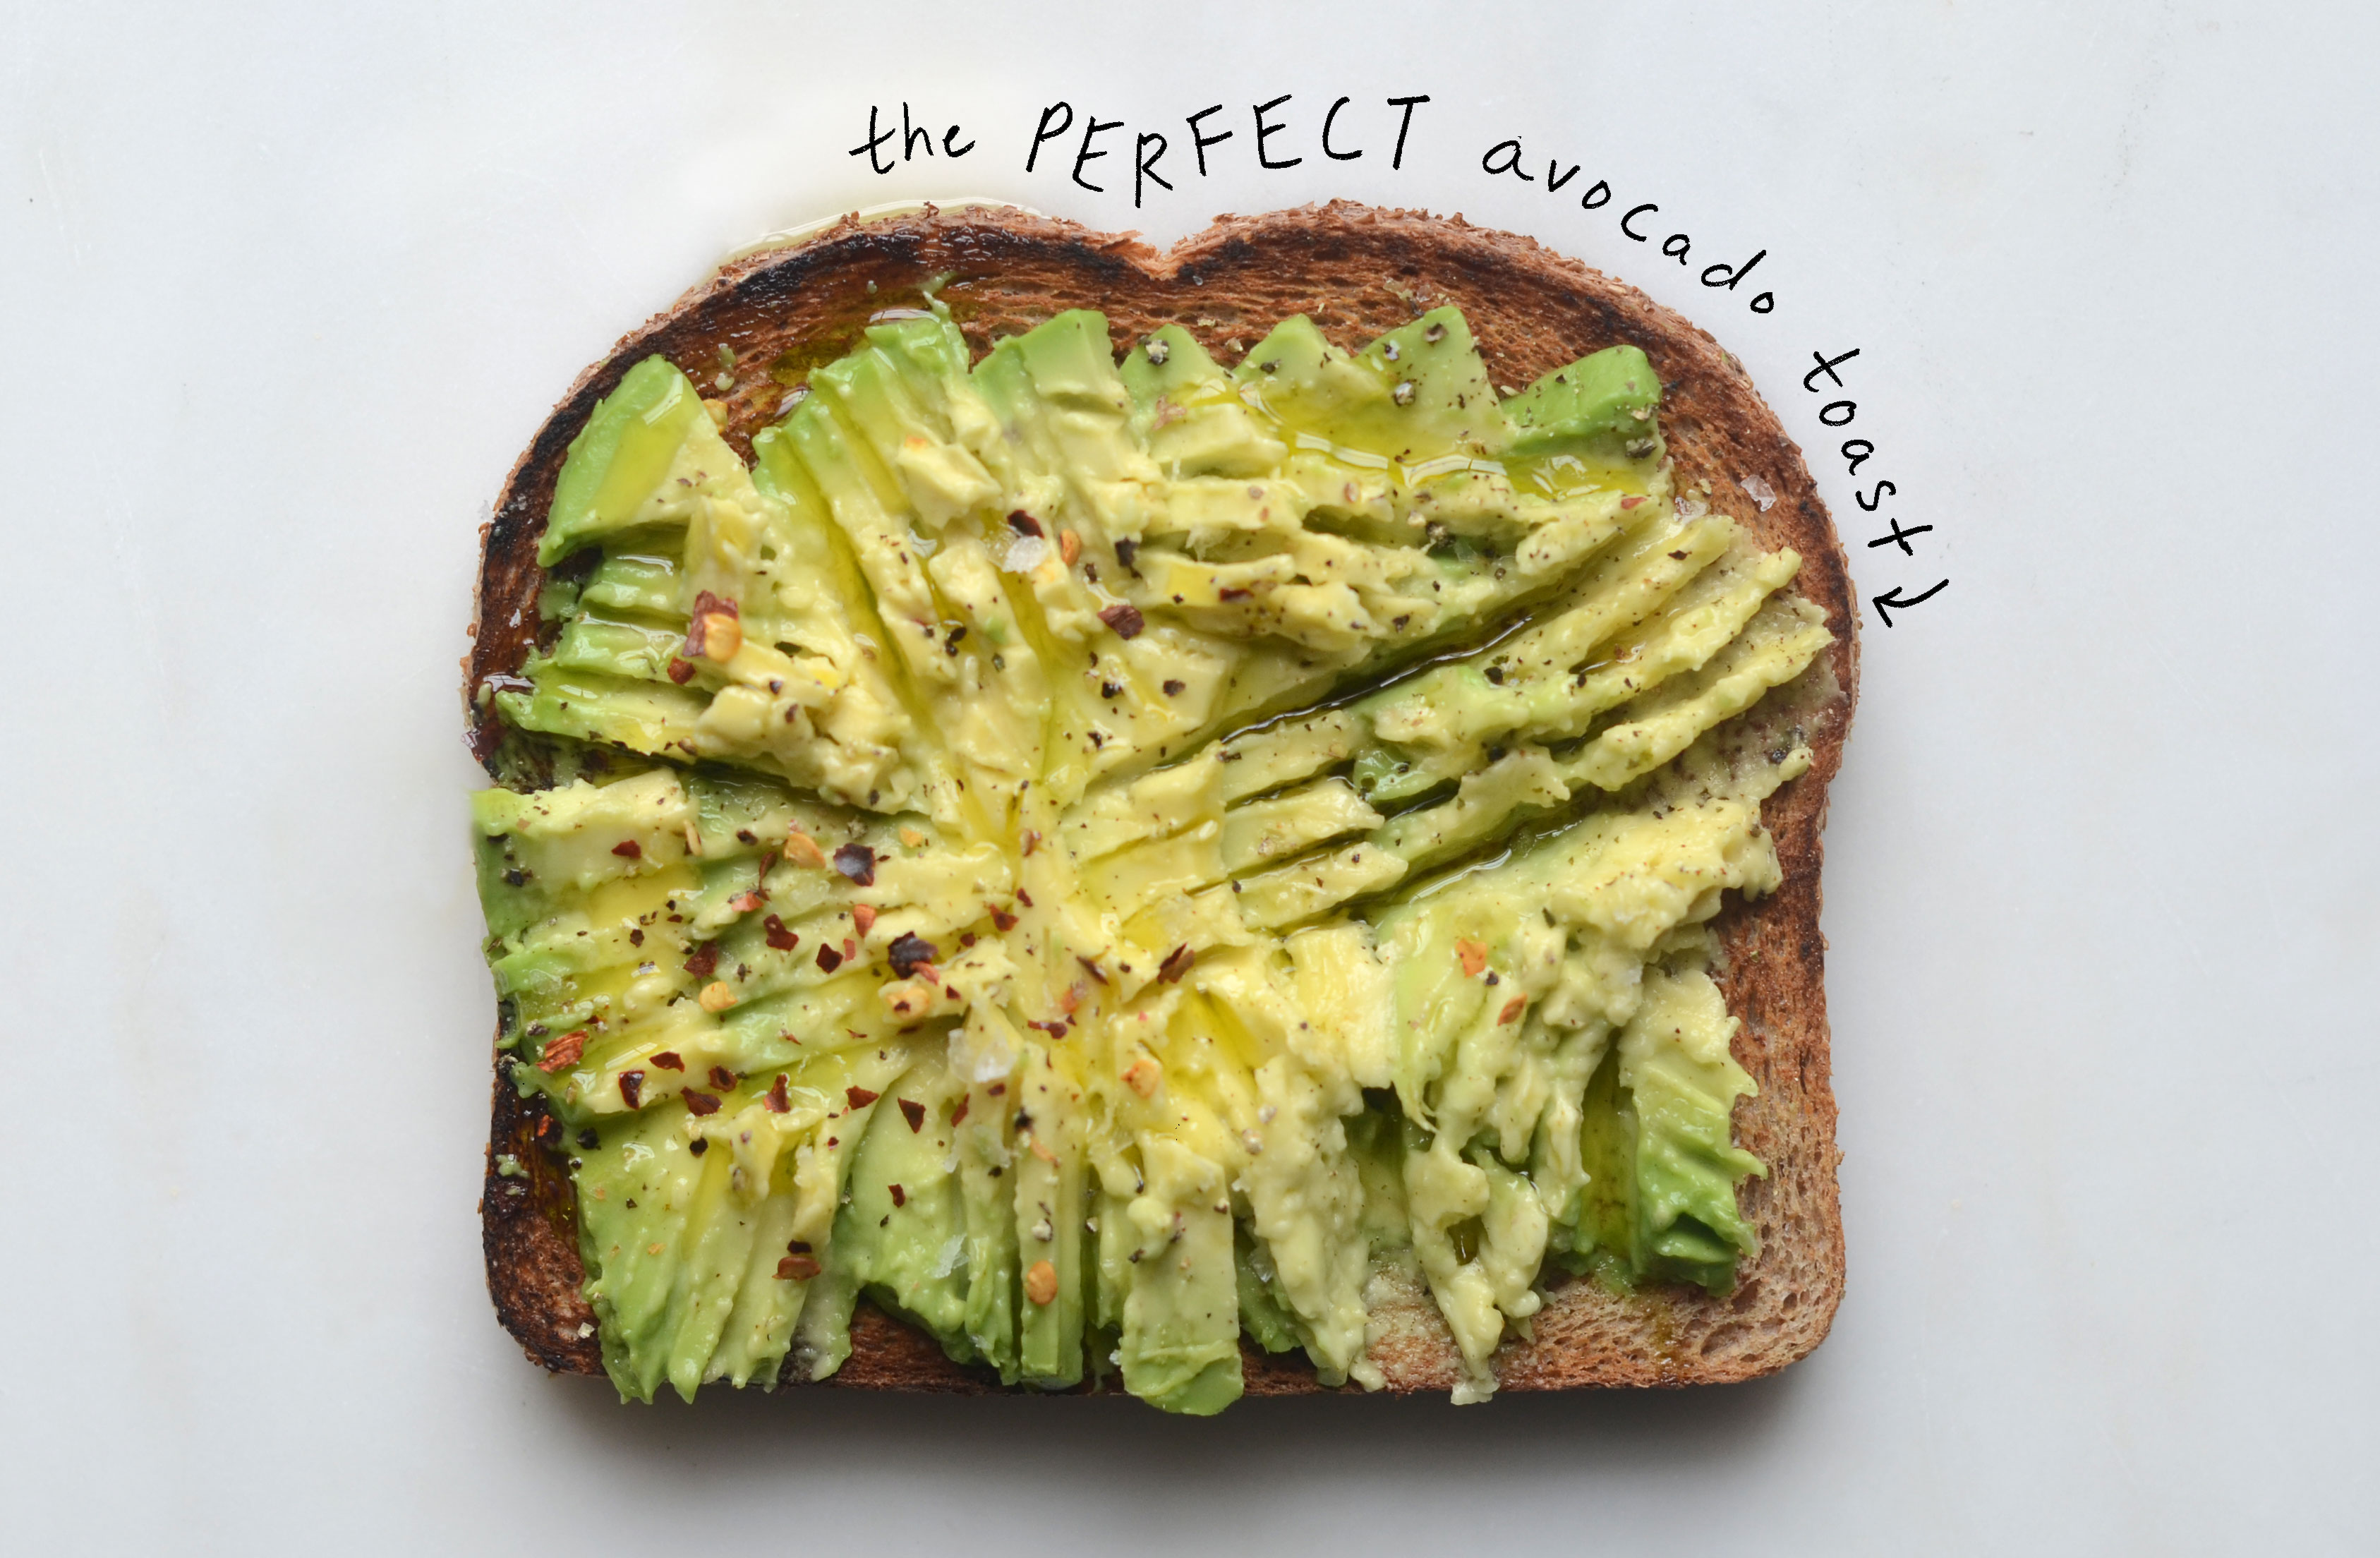 the PERFECT avocado toast